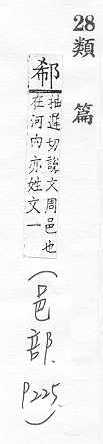 28 類篇
郗
抽遲切說文周邑也
在河內亦姓文一
(邑部. P225.)